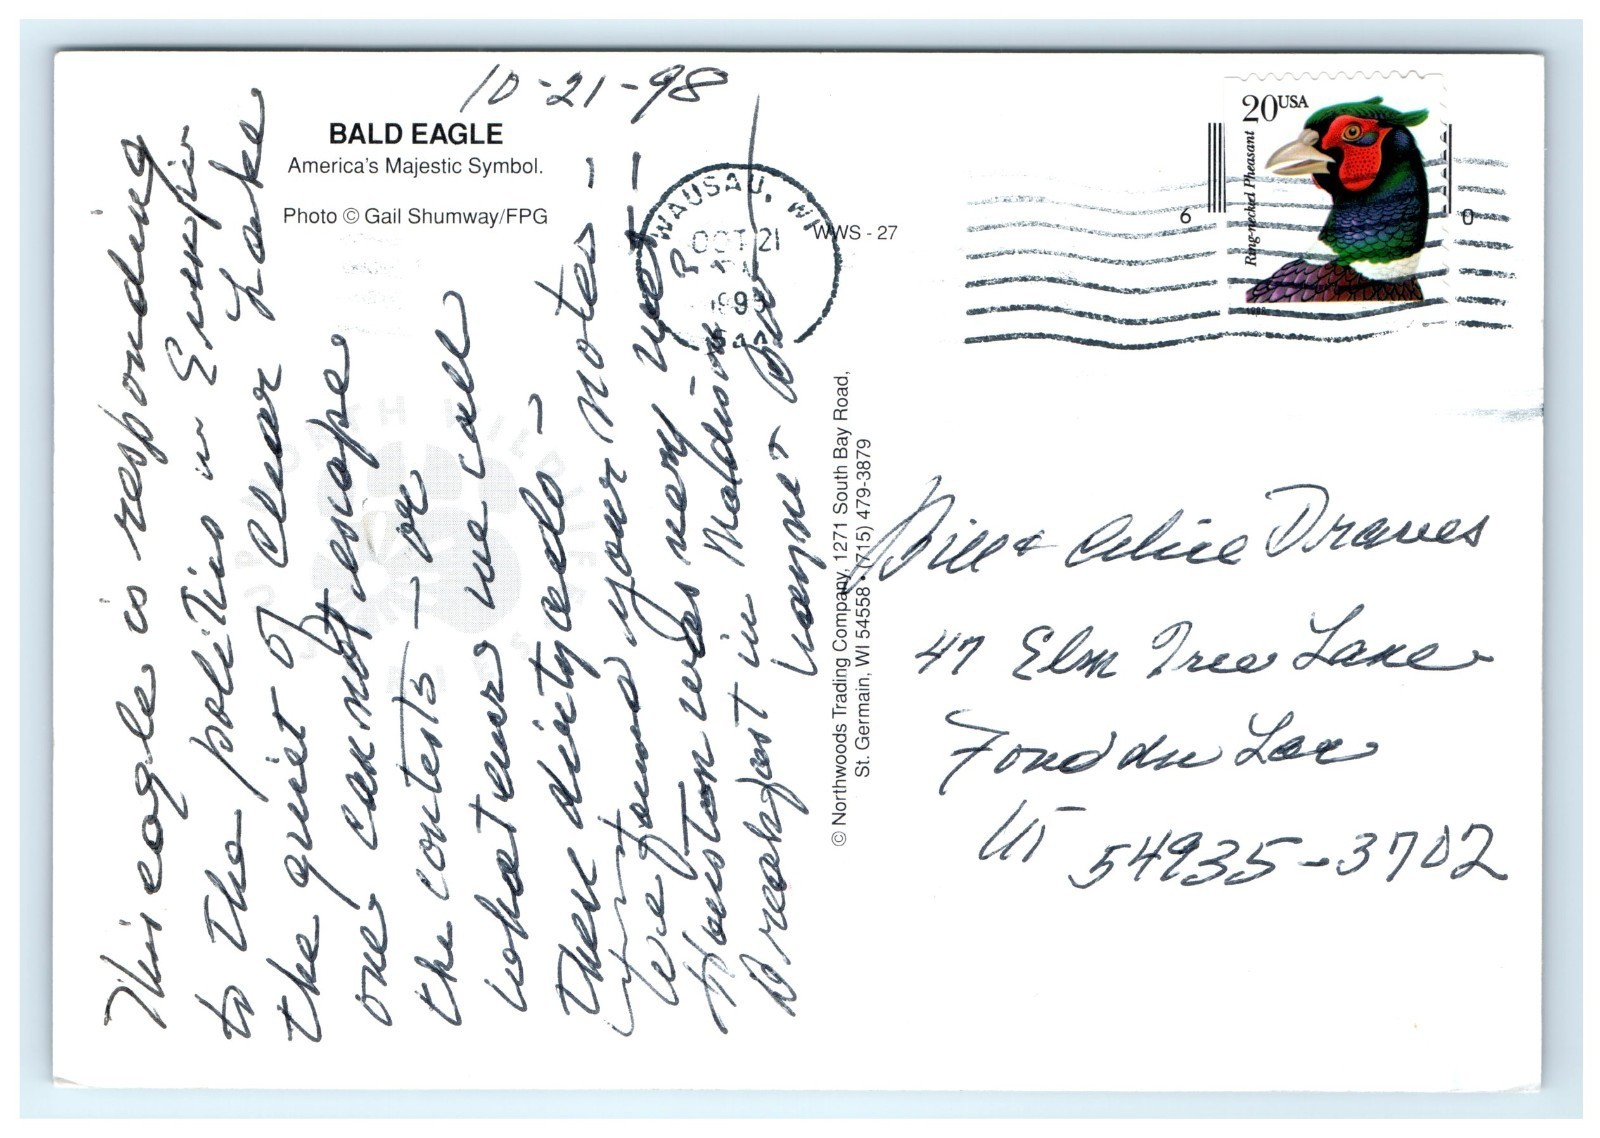 10-21-98
BALD EAGLE
America's Majestic Symbol.
Photo © Gail Shumway/FPG
This eagle is responding
to the politics in
the quiet of Clear Lake
one cannot escape
the contests - or
whatever we call
these dirty ads -
We found your notes -
Houston was very
Breakfast in Madison
WAUSAU, WI
OCT 21
PM
1998
WWS - 27
© Northwoods Trading Company, 1271 South Bay Road,
St. Germain, WI 54558 • (715) 479-3879
20USA
Ring-necked Pheasant
1998
6
0
Bill & Celice Draves
47 Elm Tree Lane
Fond du Lac
WI 54935-3702